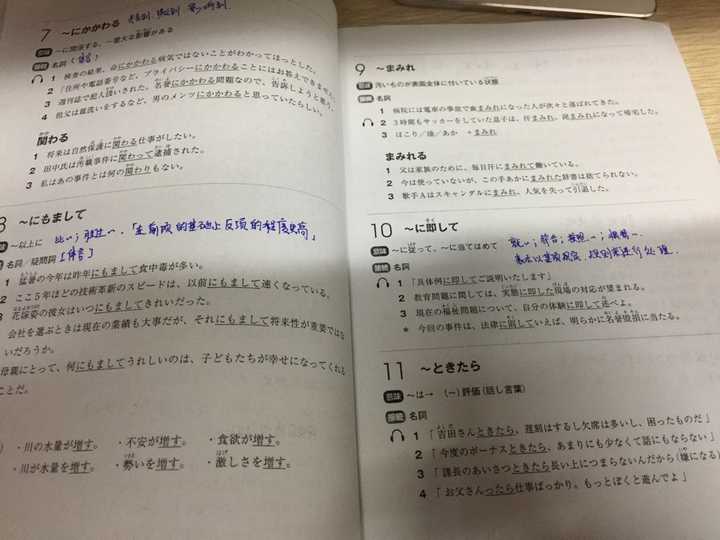 7 ～にかかわる
意味 ～に関係する、～重大な影響がある
接続 名詞
1 検査の結果、命にかかわる病気ではないことがわかってほっとした。
2 「住所や電話番号など、プライバシーにかかわることにはお答えできません」
3 週刊誌で犯人扱いされた。名誉にかかわる問題なので、告訴しようと思う。
4 祖父は皿洗いをするなど、男のメンツにかかわると思っていたらしい。
関わる
1 将来は自然保護に関わる仕事がしたい。
2 田中氏は汚職事件に関わって逮捕された。
3 私はあの事件とは何の関わりもない。
8 ～にもまして
意味 ～以上に 比～；胜过～.「在前项的基础上反项的程度更高」
接続 名詞／疑問詞 [体言]
1 猛暑の今年は昨年にもまして食中毒が多い。
2 ここ5年ほどの技術革新のスピードは、以前にもまして速くなっている。
3 花嫁姿の彼女はいつにもましてきれいだった。
会社を選ぶときは現在の業績も大事だが、それにもまして将来性が重要ではな
いだろうか。
母親にとって、何にもましてうれしいのは、子どもたちが幸せになってくれる
ことだ。
・川の水量が増す。 ・不安が増す。 ・食欲が増す。
・川が水量を増す。 ・勢いを増す。 ・激しさを増す。
9 ～まみれ
意味 汚いものが表面全体に付いている状態
接続 名詞
1 病院には電車の事故で血まみれになった人が次々と運ばれてきた。
2 3時間もサッカーをしていた息子は、汗まみれ、泥まみれになって帰宅した。
3 ほこり／油／あか ＋まみれ
まみれる
1 父は家族のために、毎日汗にまみれて働いている。
2 今は使っていないが、この手あかにまみれた辞書は捨てられない。
3 歌手Aはスキャンダルにまみれ、人気を失って引退した。
10 ～に即して
意味 ～に従って、～に当てはめて
接続 名詞
1 「具体例に即してご説明いたします」
2 教育問題に関しては、実態に即した現場の対応が望まれる。
3 現在の福祉問題について、自分の体験に即して述べよ。
＊ 今回の事件は、法律に則していえば、明らかに名誉毀損に当たる。
11 ～ときたら
意味 ～は→ （－）評価（話し言葉）
接続 名詞
1 「吉田さんときたら、遅刻はするし欠席は多いし、困ったものだ」
2 「今度のボーナスときたら、あまりにも少なくて話にもならない」
3 「課長のあいさつときたら長い上につまらないんだから（嫌になる）
4 「お父さんったら仕事ばっかり。もっとぼくと遊んでよ」